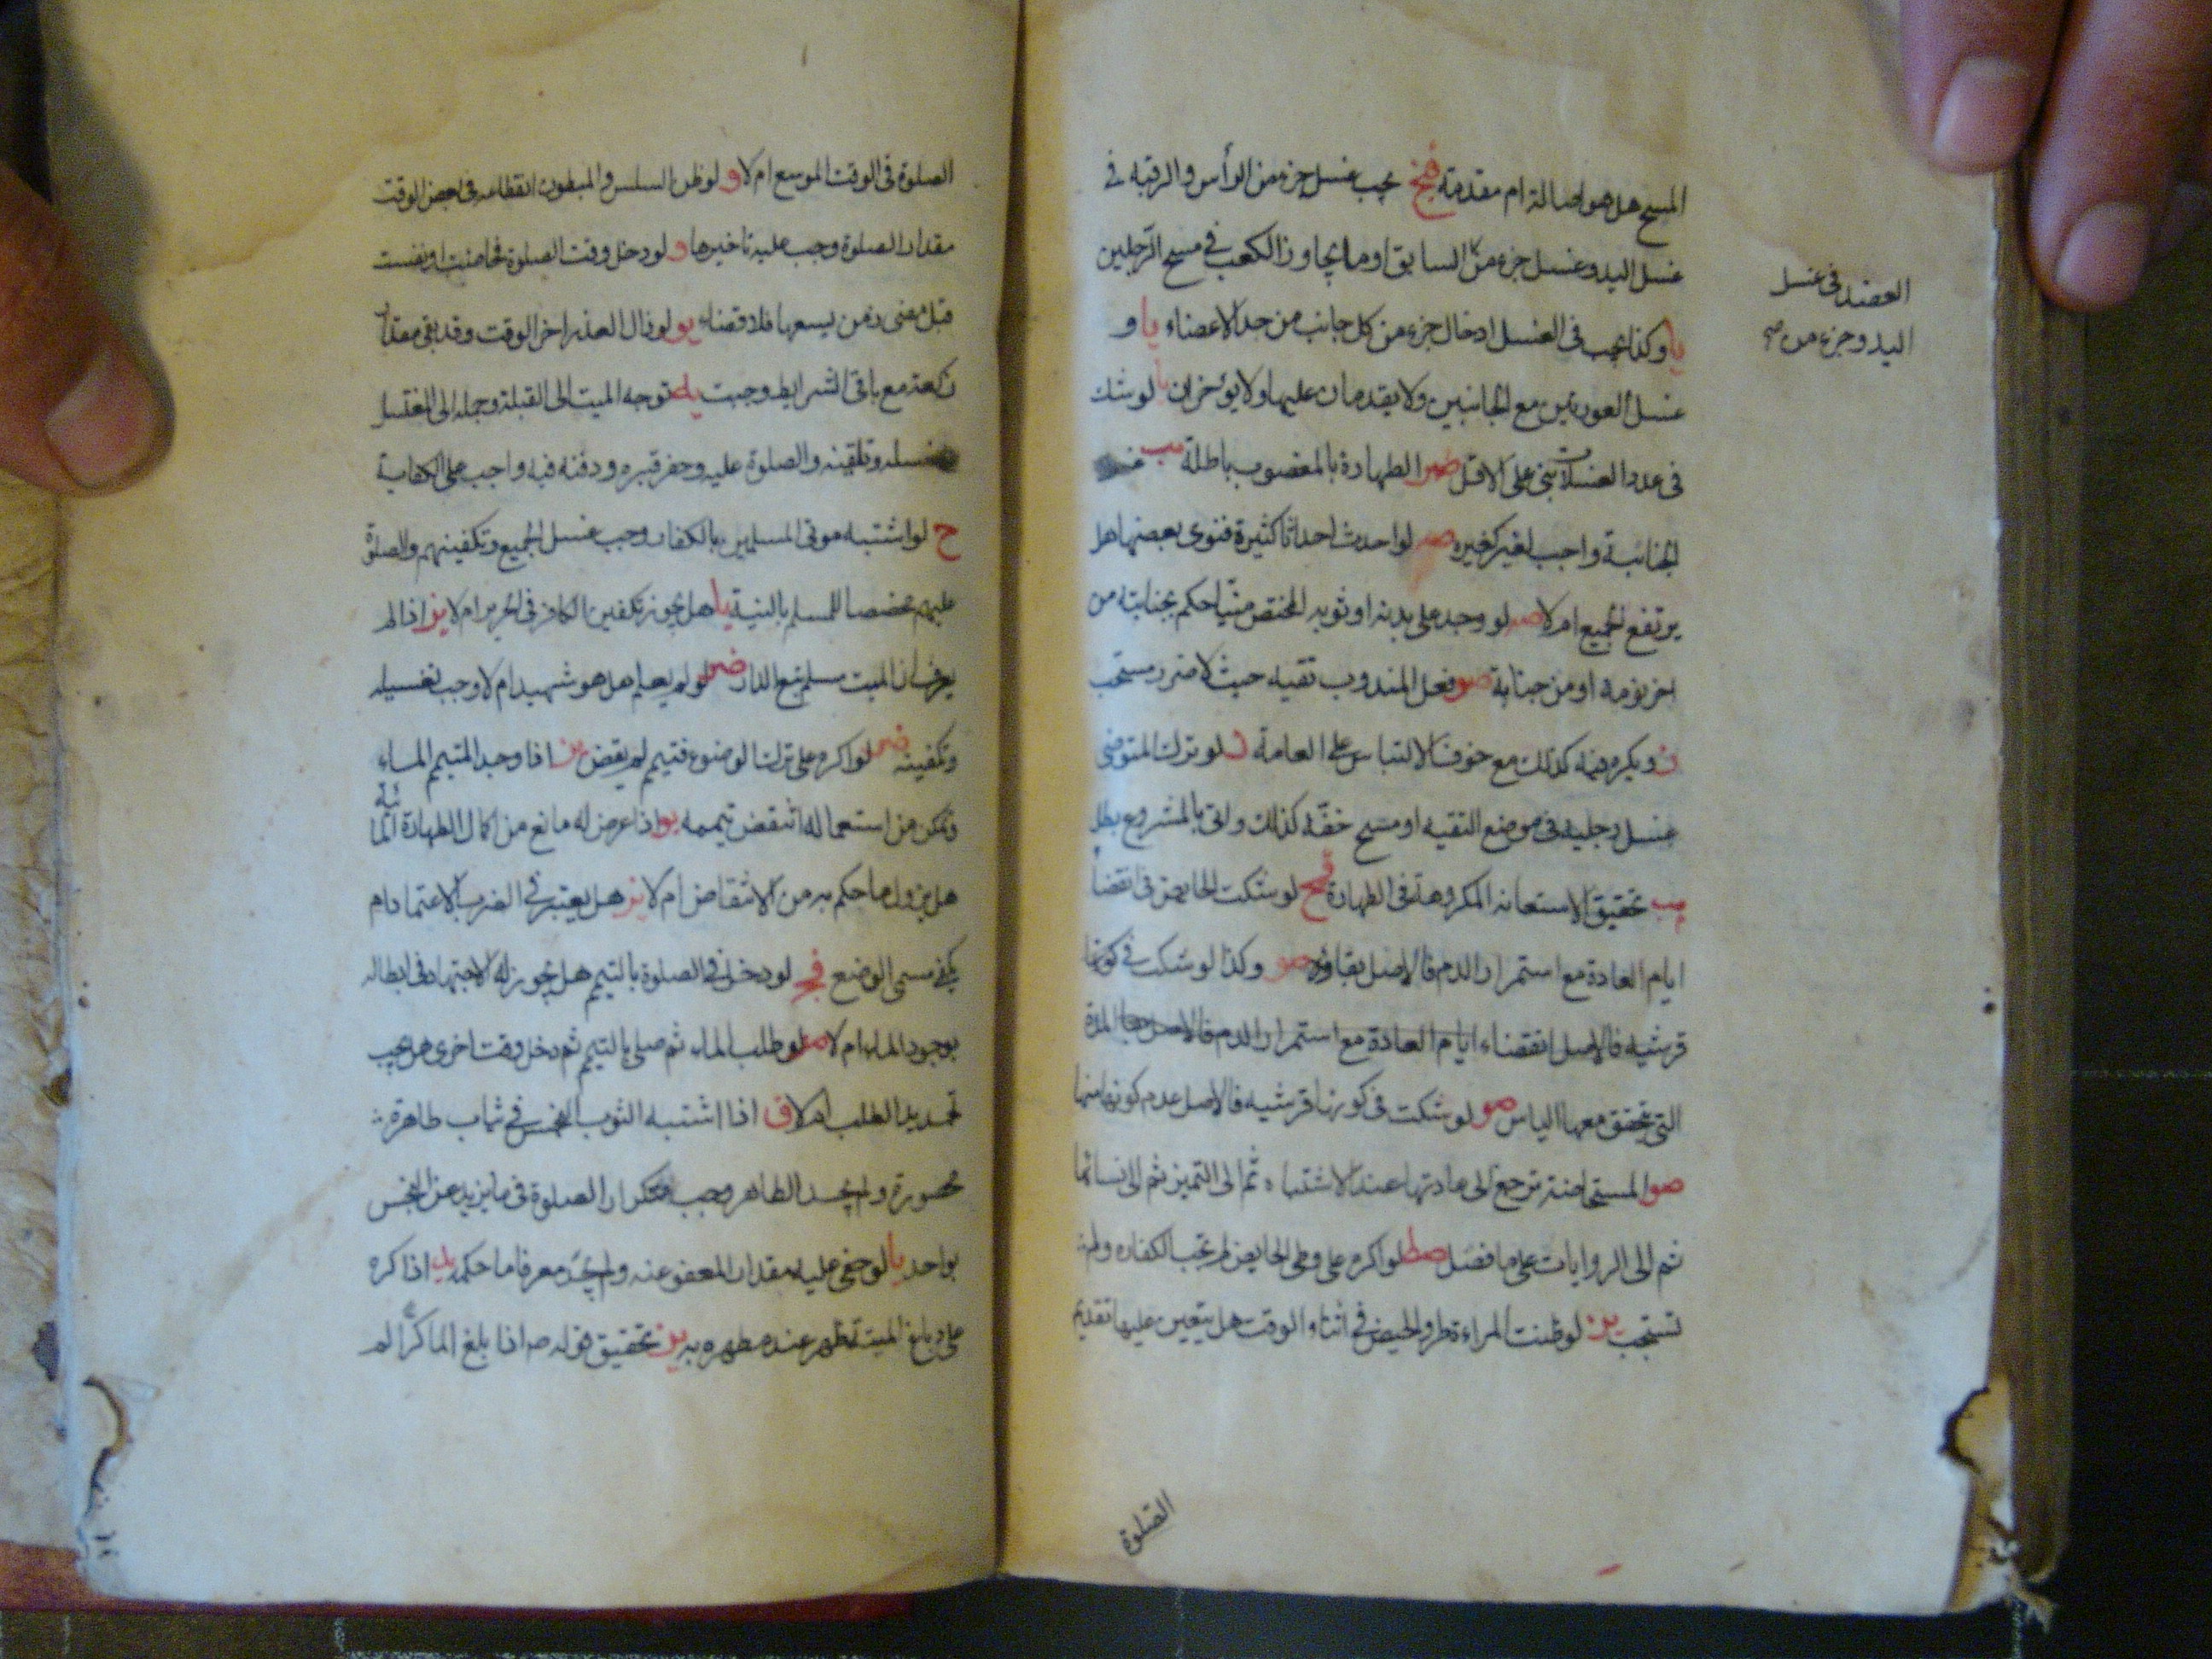 المسح هل هو اصالة ام مقدمة فيخ يجب غسل جزء من الرأس والرقبة في
غسل اليد وغسل جزء من السابق او ما يجاوز الكعب في مسح الرجلين
العضد في غسل
اليد وجزء من صح
يا وكذا يجب في الغسل ادخال جزء من كل جانب من حد الاعضاء يا و
غسل العورتين مع الجانبين ولا يقدمان عليها ولا يؤخران يا لو شك
في عدد الغسلات بنى على الاقل الطهارة بالمغصوب باطلة مب غسل
الجنابة واجب لغيره كغيره لو احدث احداثا كثيرة فنوى بعضها هل
يرتفع الجميع ام لا لو وجد على بدنه او ثوبه المختص منيا حكم بجنابته من
اخر نومه او من جنابة صو فعل المندوب تقيه حيث لا ضرر مستحب
ن ويكره فيه كذلك مع خوف الالتباس على العامة ن لو ترك المتوضى
غسل رجليه في موضع التقيه او مسح خفه كذلك واتى بالمشروع بطل
مب تحقيق الاستعانه المكروهة في الطهارة لو شكت الحايض في انقضا
ايام العادة مع استمرار الدم فالاصل بقاؤه صو وكذا لو شكت في كونها
قرشيه فالاصل انقضاء ايام العادة مع استمرار الدم فالاصل المدة
التي يتحقق معها الياس صو لو شكت في كونها قرشيه فالاصل عدم كونها منها
صو المستحاضة ترجع الى عادتها عند الاشتباه ثم الى التميز ثم الى نسائها
ثم الى الروايات على ما فصل صط لو اكره على وطى الحايض لم تجب الكفاره ولم
تستحب ين لو ظنت المراءة طرو الحيض في اثناء الوقت هل يتعين عليها تقديم
الصلوة
الصلوة في الوقت الموسع ام لا و لو ظن السلس والمبطون انقطاعه في بعض الوقت
مقدار الصلوة وجب عليه تاخيرها و لو دخل وقت الصلوة فحاضت او نفست
قبل مضى زمن يسعها فلا قضاء يو لو زال العذر اخر الوقت وقد بقى مقدار
ركعة مع باقى الشرايط وجبت توجه الميت الى القبلة وحمله الى المغتسل
وغسله وتلقينه والصلوة عليه وحفر قبره ودفنه فيه واجب على الكفاية
ح لو اشتبه موتى المسلمين بالكفار وجب غسل الجميع وتكفينهم والصلوة
عليهم مخصصا للمسلم بالنية يا هل يجوز تكفين الكافر في الحرير ام لا يو اذا لم
يعرف ان الميت مسلم تبع الدار لو لم يعلم هل هو شهيد ام لا وجب تغسيله
وتكفينه لو اكره على ترك الوضوء فتيمم لم يقض ين اذا وجد المتيمم الماء
وتمكن من استعماله انتقض تيممه يو اذا عرض له مانع من اكمال الطهارة المائية
هل يزول ما حكم به من الانتقاض ام لا يز هل يعتبر في الضرب الاعتماد ام
يكفى مسمى الوضع فيح لو دخل في الصلوة بالتيمم هل يجوز له الاجتهاد في ابطاله
بوجود الماء ام لا صو لو طلب الماء ثم صلى بالتيمم ثم دخل وقت اخرى هل يجب
تجديد الطلب ام لا ق اذا اشتبه الثوب النجس في ثياب طاهرة
محصورة ولم يجد الطاهر وجب تكرار الصلوة في ما يزيد عن النجس
بواحد يا لو خفى عليه مقدار المعفو عنه ولم يجد معرفا ما حكمه يد اذا كره
على دباغ الميتة تطهر عند مطهره به ين تحقيق قوله صم اذا بلغ الماء كرا لم